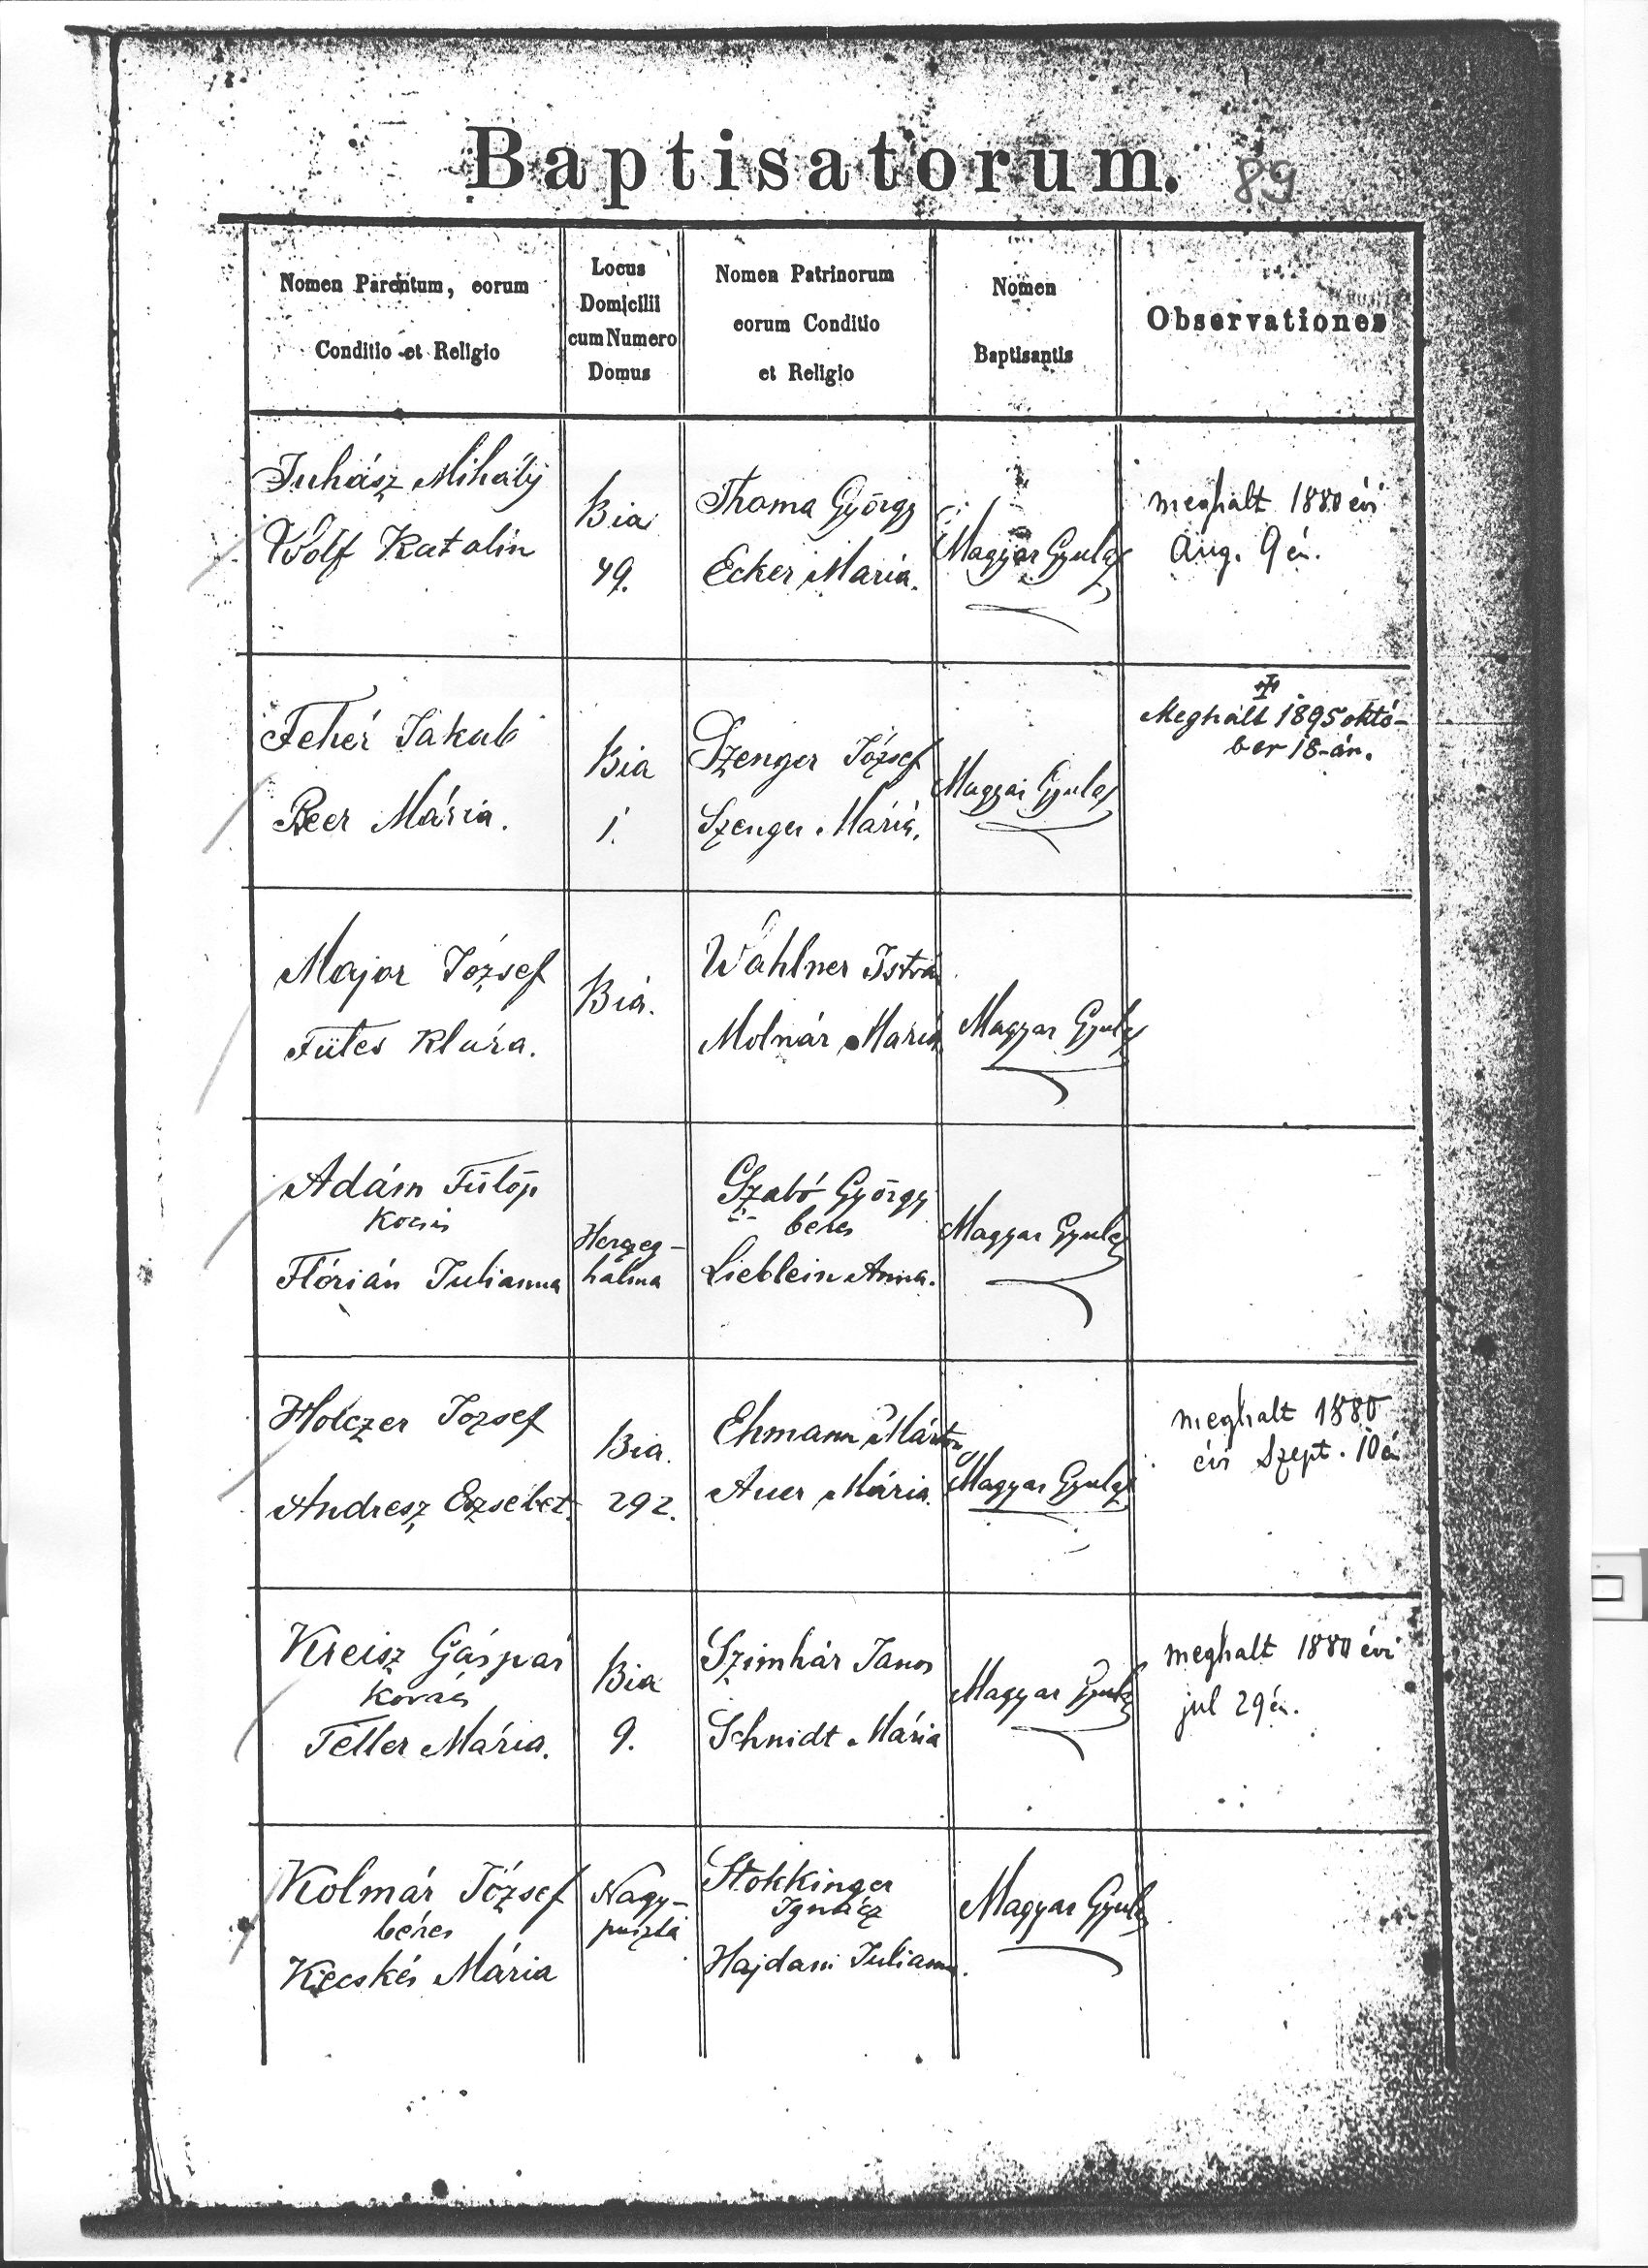 Baptisatorum. 89
Nomen Parentum, eorum
Conditio et Religio
Locus
Domicilii
cum Numero
Domus
Nomen Patrinorum
eorum Conditio
et Religio
Nomen
Baptisantis
Observationes
Juhász Mihály
Wolf Katalin
Bia
49.
Thoma György
Ecker Mária.
Magyar Gyula
meghalt 1880 évi
Aug. 9én.
Fehér Jakab
Beer Mária.
Bia
1.
Szenger József
Szenger Mária.
Magyar Gyula
Meghalt 1895 októ-
ber 18-án.
Major József
Fütes Klára.
Bia.
Wahlner István
Molnár Mária
Magyar Gyula
Adám Fülöp
kocsis
Flórián Julianna
Herczeg-
halma
Szabó György
béres
Lieblein Anna.
Magyar Gyula
Holczer József
Andresz Erzsébet.
Bia.
292.
Ehmann Márton
Auer Mária.
Magyar Gyula
meghalt 1880
évi Szept. 10én
Kreisz Gáspár
kovács
Teller Mária.
Bia
9.
Szimhár János
Schmidt Mária
Magyar Gyula
meghalt 1880 évi
jul 29én.
Kolmár József
béres
Kecskés Mária
Nagy-
puszta
Stokkinger
Ignácz
Hajdani Julianna.
Magyar Gyula